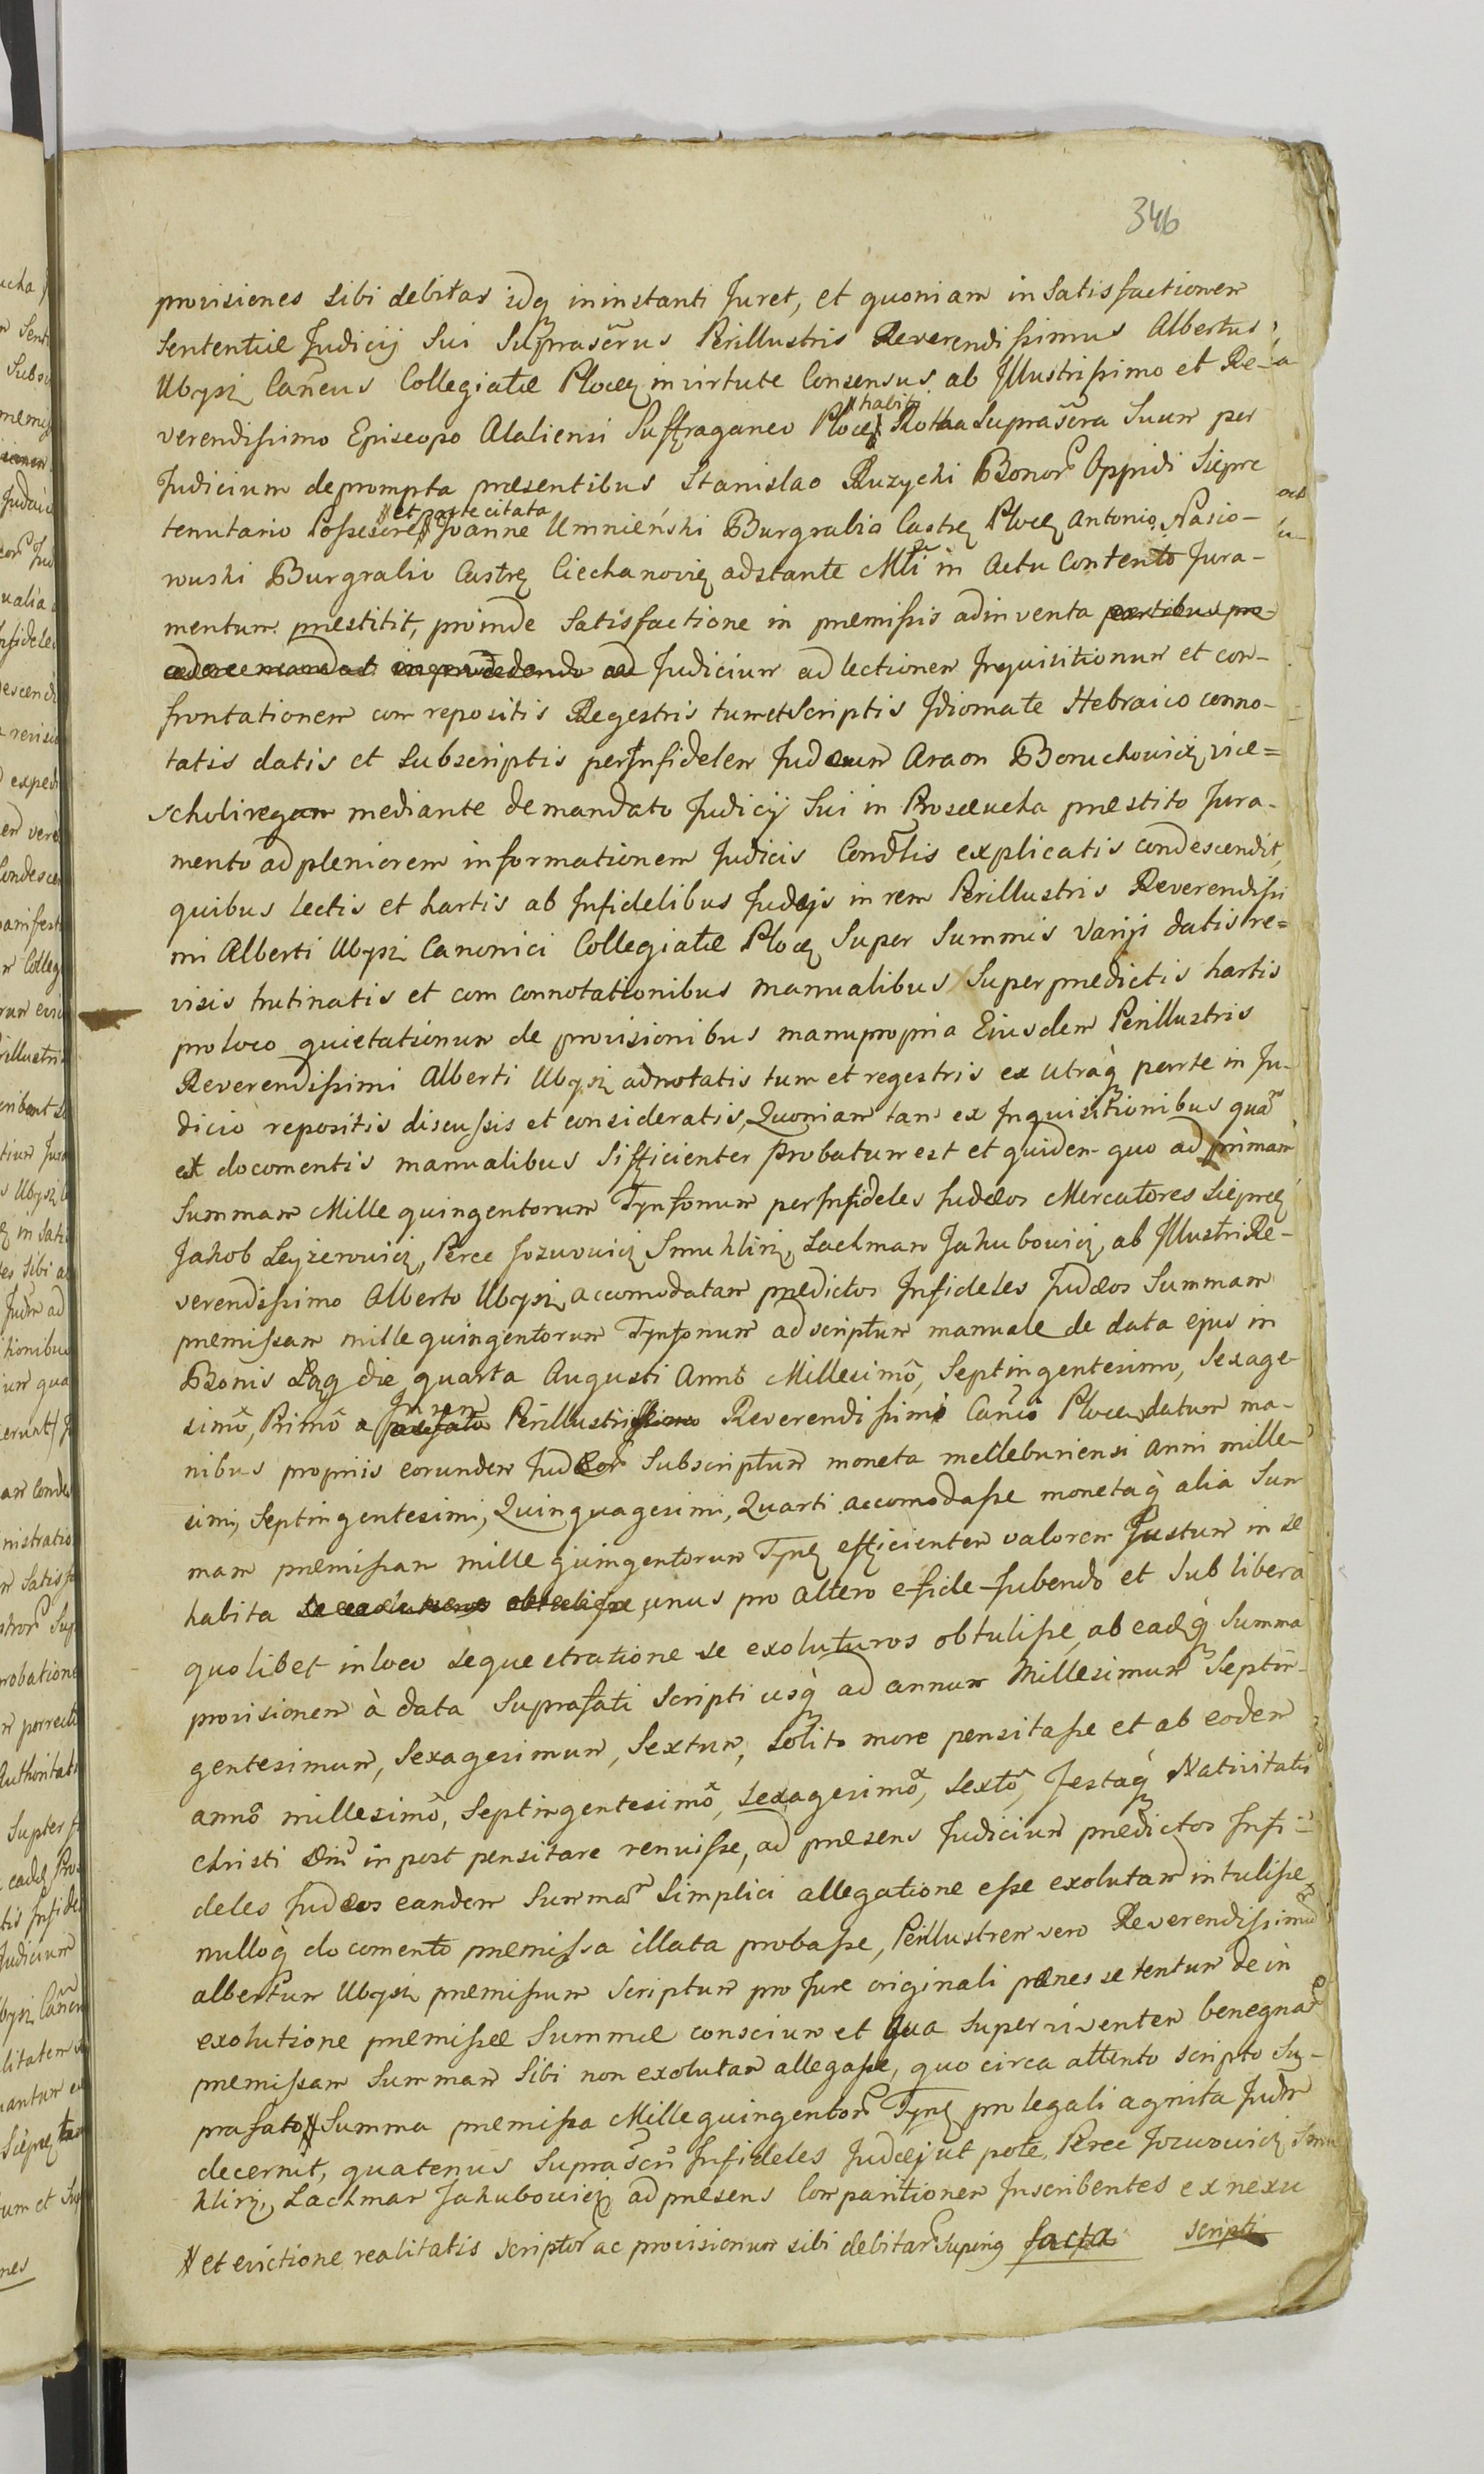 346
provisiones sibi debitas idq in instanti Juret, et quoniam in Satisfactionem
Sententiæ Judicij Sui Suprascrus Perillustris Reverendissimus Albertus
Ubysz Cancus Collegiatæ Plocen in virtute Consensus ab Illustrissimo et Re-
verendissimo Episcopo Alaliensi Suffraganeo Plocen habiti Rotha Suprascra Suum per
Judicium deprompta præsentibus Stanislao Ruzycki Bonor Oppidi Siepre
tenutario Possesore et parte citata Joanne Umnieński Burgrabio Castren Plocen Antonio Nasio-
rowski Burgrabio Castren Ciechanovien adstante Mli in Actu Contento Jura-
mentum præstitit, proinde Satisfactione in præmissis adinventa partibus pro
cedere mandat in procedendo ad Judicium ad lectionem Inquisitionum et con-
frontationem com repositis Regestris tum et Scriptis Idiomate Hebraico conno-
tatis datis et Subscriptis per Infidelem Judæum Araon Boruchowicz vice=
scholnegum mediante demandato Judicij Sui in Proseucha præstito Jura-
mento ad pleniorem informationem Judicis Condlis explicatis condescendit,
quibus lectis et hartis ab Infidelibus Judæjs in rem Perillustris Reverendissi
mi Alberti Ubysz Canonici Collegiatæ Plocen Super Summis varijs datis re=
visis trutinatis et com connotationibus manualibus Super prædictis hartis
pro loco quietationum de provisionibus manu propria Eiusdem Perillustris
Reverendissimi Alberti Ubysz adnotatis tum et regestris ex utraq parte in Ju-
dicio repositis discussis et consideratis, Quoniam tam ex Inquisitionibus qua
ex documentis manualibus Sifficienter probatum est et quidem quo ad primam
Summam Mille quingentorum Tynfonum per Infideles Judæos Mercatores Sieprcen
Jakob Leyzerowicz, Perec Jozwowicz Smuklirz, Lachman Jakubowicz, ab Illustri Re-
verendissimo Alberto Ubysz accomodatam prædictos Infideles Judæos Summam
præmissam mille quingentorum Tynfonum ad scriptum manuale de data ejus in
Bonis Łąg die quarta Augusti Anno Millesimo, Septingentesimo, Sexage-
simo, Primo a præfato In rem Perillustrissimo Reverendissimi Canci Plocen datum ma-
nibus propriis eorundem Judæor Subscriptum moneta melleburiensi anni mille-
simi, Septingentesimi, Quinquagesimi, Quarti accomodasse monetaq alia Sum
mam præmissam mille quingentorum Tynf efficientem valorem Justum in se
habita se exoluturos obtulisse unus pro altero e-fide-Jubendo et Sub libera
quolibet in loco sequestratione se exoluturos obtulisse, ab eadq Summa
provisionem à data Suprafati Scripti usq ad annum Millesimum Septin-
gentesimum, Sexagesimum, Sextum, Solito more pensitasse et ab eodem
anno millesimo, Septingentesimo, Sexagesimo, Sexto, Festaq Nativitatis
Christi Dni in post pensitare renuisse, ad præsens Judicium prædictos Infi-
deles Judæos eandem Summam Simplici allegatione esse exolutam intulisse
nulloq documento præmissa illata probasse, Perillustrem vero Reverendissimum
albertum Ubysz præmissum Scriptum pro Jure originali pænes se tentum de in
exolutione præmissæ Summæ conscium et Qua Superviventem benegna
præmissam Summam Sibi non exolutam allegasse, quo circa attento scripto Su-
prafato Summa præmissa Mille quingentor Tynf pro legali agnita Judm
decernit, quatenus Suprascri Infideles Judæj ut pote Perec Jozwowicz Smu
klirz, Lachman Jakubowicz ad præsens Comparitionem Inscribentes ex nexu
et evictione realitatis scriptor ac provisionum sibi debitar Superius facta scripti